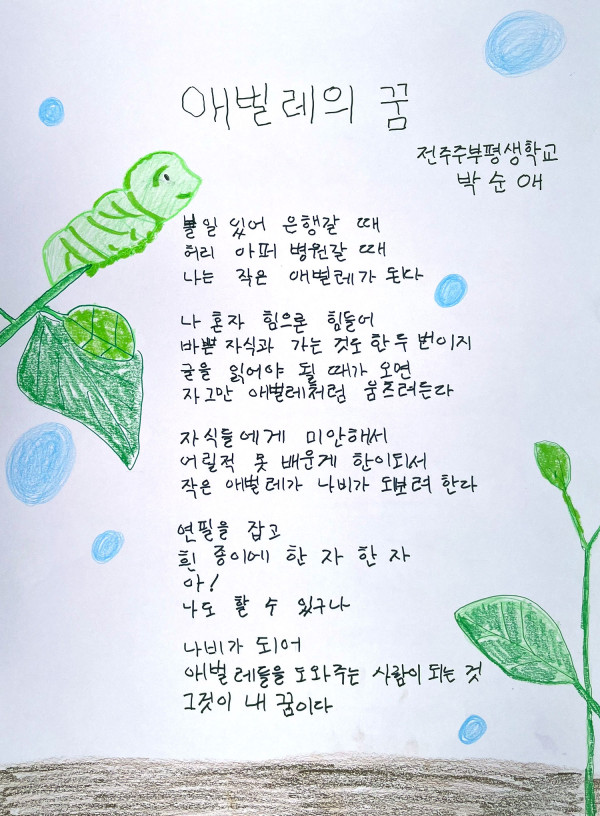 애벌레의 꿈
전주주부평생학교
박순애
볼일 있어 은행갈 때
허리 아퍼 병원갈 때
나는 작은 애벌레가 된다
나 혼자 힘으론 힘들어
바쁜 자식과 가는 것도 한두 번이지
글을 읽어야 될 때가 오면
자그만 애벌레처럼 움츠려든다
자식들에게 미안해서
어릴적 못 배운게 한이되서
작은 애벌레가 나비가 되보려 한다
연필을 잡고
흰 종이에 한 자 한 자
아!
나도 할 수 있구나
나비가 되어
애벌레들을 도와주는 사람이 되는 것
그것이 내 꿈이다